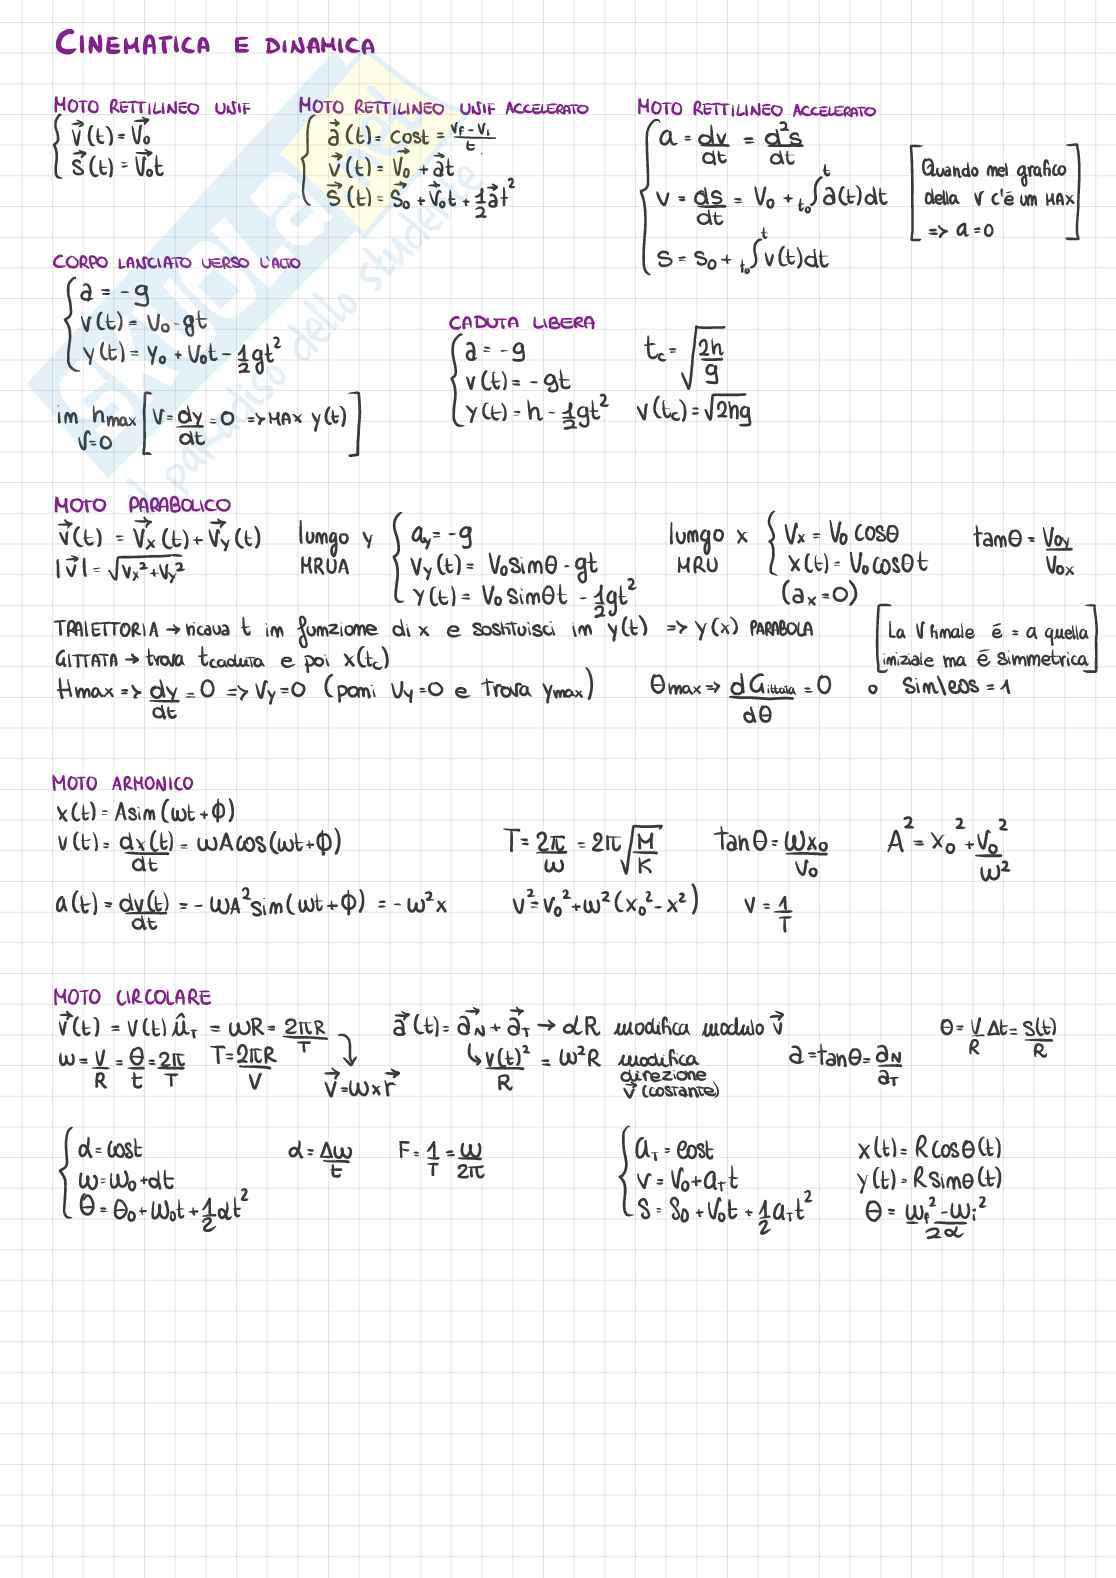 CINEMATICA E DINAMICA
MOTO RETTILINEO UNIF
v⃗(t) = v⃗₀
s⃗(t) = v⃗₀t
MOTO RETTILINEO UNIF ACCELERATO
a⃗(t) = cost = (v_f - v_i)/t
v⃗(t) = v⃗₀ + a⃗t
s⃗(t) = s⃗₀ + v⃗₀t + 1/2 a⃗t²
MOTO RETTILINEO ACCELERATO
a = dv/dt = d²s/dt
v = ds/dt = V₀ + t₀∫ᵗ a(t)dt
s = s₀ + t₀∫ᵗ v(t)dt
[Quando nel grafico
della V c'é un MAX
=> a=0]
CORPO LANCIATO VERSO L'ALTO
a = -g
v(t) = V₀ - gt
y(t) = y₀ + V₀t - 1/2 gt²
in h_max [V = dy/dt = 0 => MAX y(t)]
V=0
CADUTA LIBERA
a = -g
v(t) = -gt
y(t) = h - 1/2 gt²
t_c = √(2h/g)
v(t_c) = √2hg
MOTO PARABOLICO
v⃗(t) = v⃗ₓ(t) + v⃗_y(t)
|v⃗| = √(vₓ² + v_y²)
lungo y
MRUA
a_y = -g
V_y(t) = V₀sinθ - gt
y(t) = V₀sinθt - 1/2 gt²
lungo x
MRU
Vₓ = V₀cosθ
x(t) = V₀cosθt
(aₓ=0)
tanθ = V₀y/V₀x
TRAIETTORIA → ricava t in funzione di x e sostituisci in y(t) => y(x) PARABOLA
GITTATA → trova t_caduta e poi x(t_c)
[La V finale é = a quella
iniziale ma é simmetrica]
Hmax => dy/dt = 0 => V_y=0 (poni V_y=0 e trova y_max)
θmax => dGittata/dθ = 0 o sin/cos = 1
MOTO ARMONICO
x(t) = Asin(ωt + Φ)
v(t) = dx(t)/dt = ωAcos(ωt+Φ)
T = 2π/ω = 2π√(M/K)
tanθ = ωx₀/V₀
A² = x₀² + V₀²/ω²
a(t) = dv(t)/dt = -ωA²sin(ωt + Φ) = -ω²x
v² = v₀² + ω²(x₀² - x²)
ν = 1/T
MOTO CIRCOLARE
v⃗(t) = v(t) û_T = ωR = 2πR/T
ω = V/R = θ/t = 2π/T
T = 2πR/V
v⃗ = ω x r⃗
a⃗(t) = a⃗_N + a⃗_T → αR modifica modulo v⃗
↳ v(t)²/R = ω²R modifica
direzione
v⃗ (costante)
θ = V/R Δt = s(t)/R
a = tanθ = a_N/a_T
α = cost
ω = ω₀ + αt
θ = θ₀ + ω₀t + 1/2 αt²
α = Δω/t
F = 1/T = ω/2π
a_T = cost
v = v₀ + a_T t
s = s₀ + v₀t + 1/2 a_T t²
x(t) = Rcosθ(t)
y(t) = Rsinθ(t)
θ = (ω_f² - ω_i²)/2α
SKUOLA.net
il paradiso dello studente